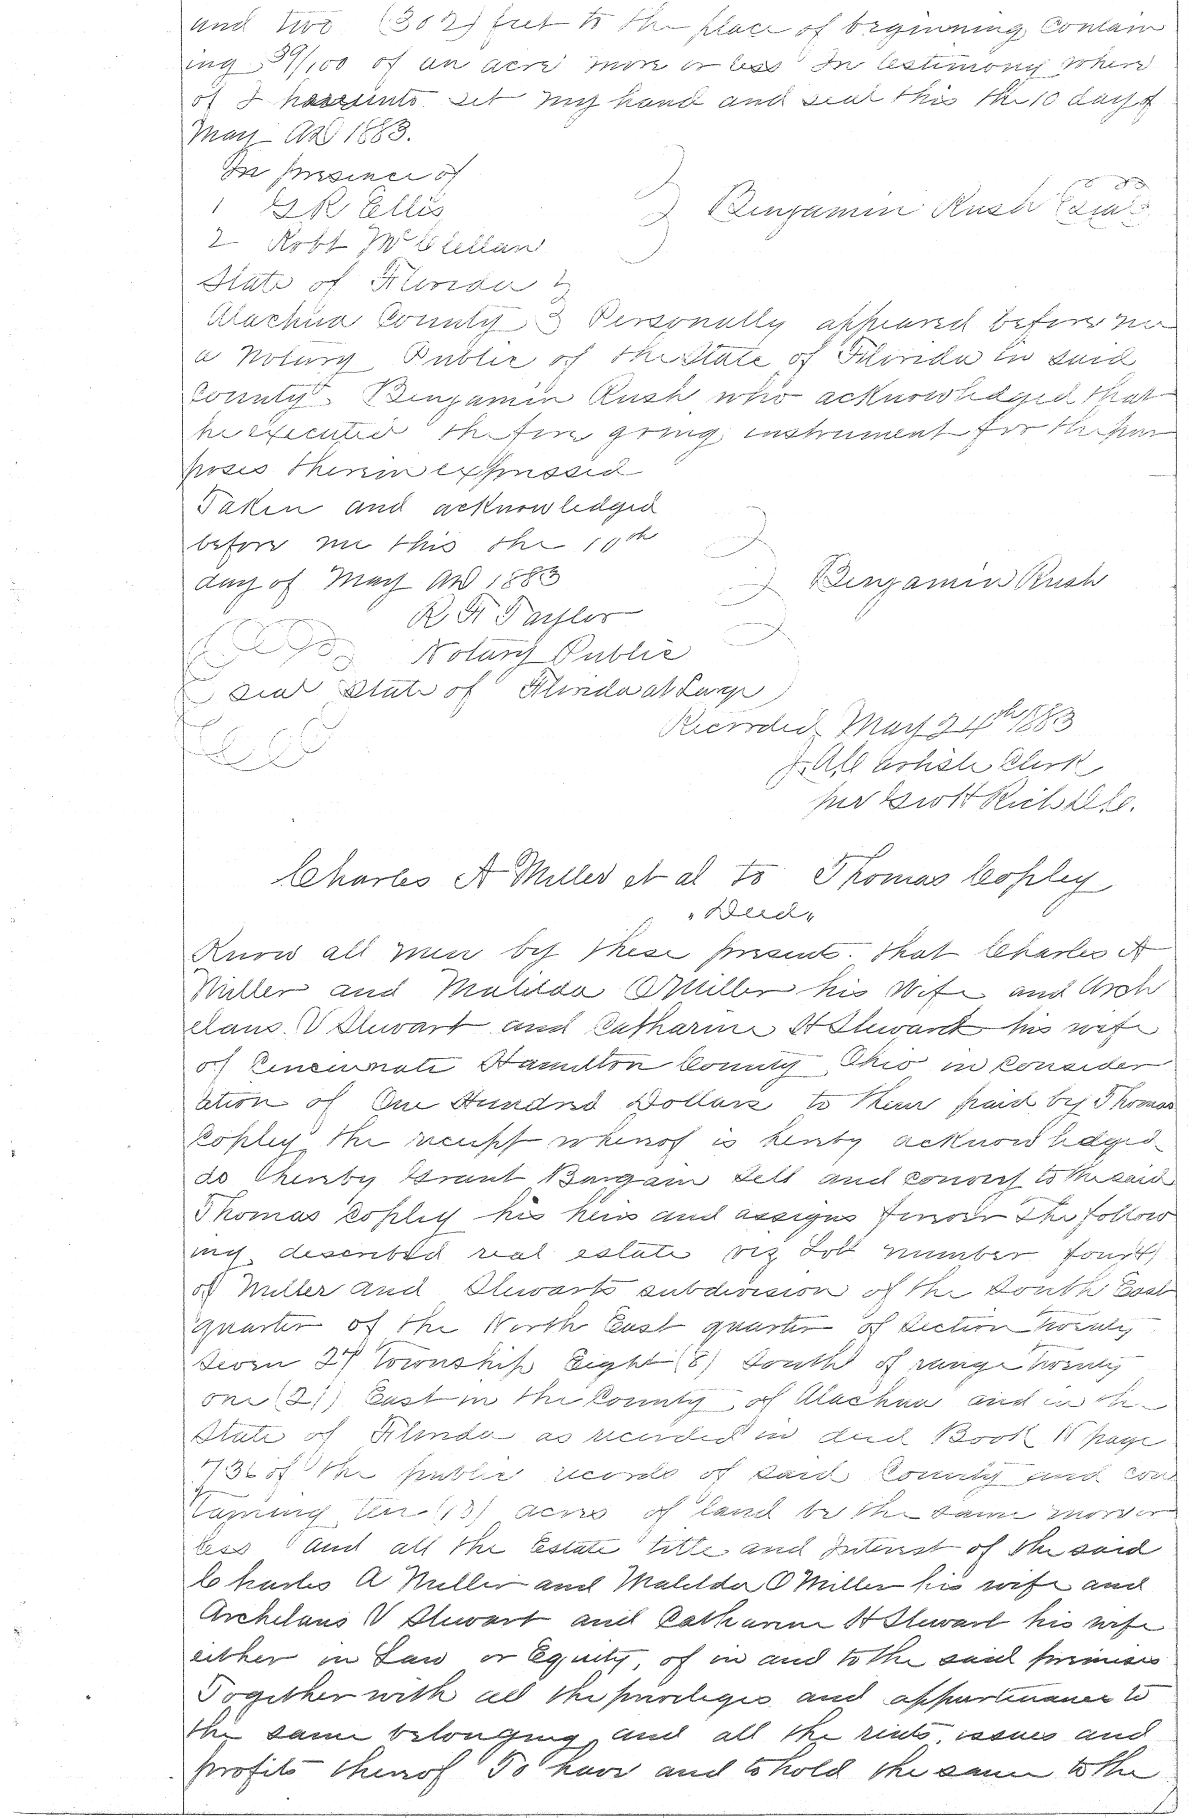 and two (302) feet to the place of beginning Contain
ing 39/100 of an acre more or less In testimony where
of I hereunto set my hand and seal this the 10 day of
May AD 1883.
In presence of
1 G R Ellis
2 Robt McClellan
Benjamin Rush Seal
State of Florida
Alachua County Personally appeared before me
a Notary Public of the State of Florida in said
County. Benjamin Rush who acknowledged that
he executed the fore going instrument for the pur
poses therein expressed
Taken and acknowledged
before me this the 10th
day of May AD 1883
Benjamin Rush
R F Taylor
Notary Public
seal State of Florida at Large
Recorded May 24th 1883
J. A. Clerk
per Rich D.C.
Charles A Miller et al to Thomas Copley
"Deed"
Know all men by these presents. that Charles A
Miller and Matilda O Miller his Wife and Arch
elaus. V Stewart and Catharine H Stewart his wife
of Cincinnati Hamilton County Ohio in Consider
ation of One Hundred Dollars to them paid by Thomas
Copley the receipt whereof is hereby acknowledged
do hereby Grant Bargain Sell and convey to the said
Thomas Copley his heirs and assigns forever The follow
ing described real estate viz Lot number four (4)
of Miller and Stewarts subdivision of the South East
quarter of the North East quarter of Section Twenty
seven 27 Township Eight (8) South of range Twenty
one (21) East in the County of Alachua and in the
State of Florida as recorded in deed Book page
736 of the public records of said County and con
taining ten (10) acres of land be the same more or
less and all the Estate title and Interest of the said
Charles A Miller and Matilda O Miller his wife and
Archelaus V Stewart and Catharine H Stewart his wife
either in Law or Equity, of in and to the said premises
Together with all the privileges and appurtenance to
the same belonging and all the rents, issues and
profits thereof To have and to hold the same to the